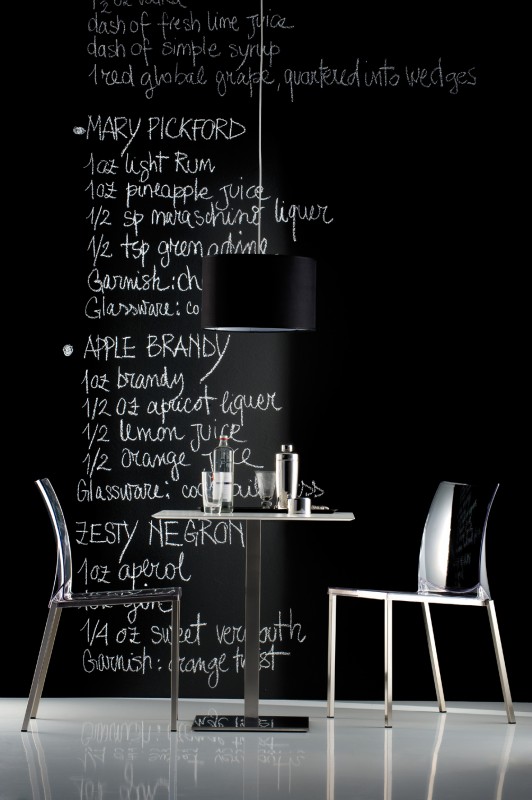 1/2 oz vodka
dash of fresh lime juice
dash of simple syrup
1 red ghobal grape, quartered into wedges
MARY PICKFORD
1oz light Rum
1oz pineapple juice
1/2 sp maraschino liquer
1/2 tsp grenadine
Garnish: ch
Glassware: co
APPLE BRANDY
1oz brandy
1/2 oz apricot liquer
1/2 lemon juice
1/2 orange juice
Glassware:
ZESTY NEGRON
1oz aperol
1oz gin
1/4 oz sweet vermouth
Garnish: orange twist